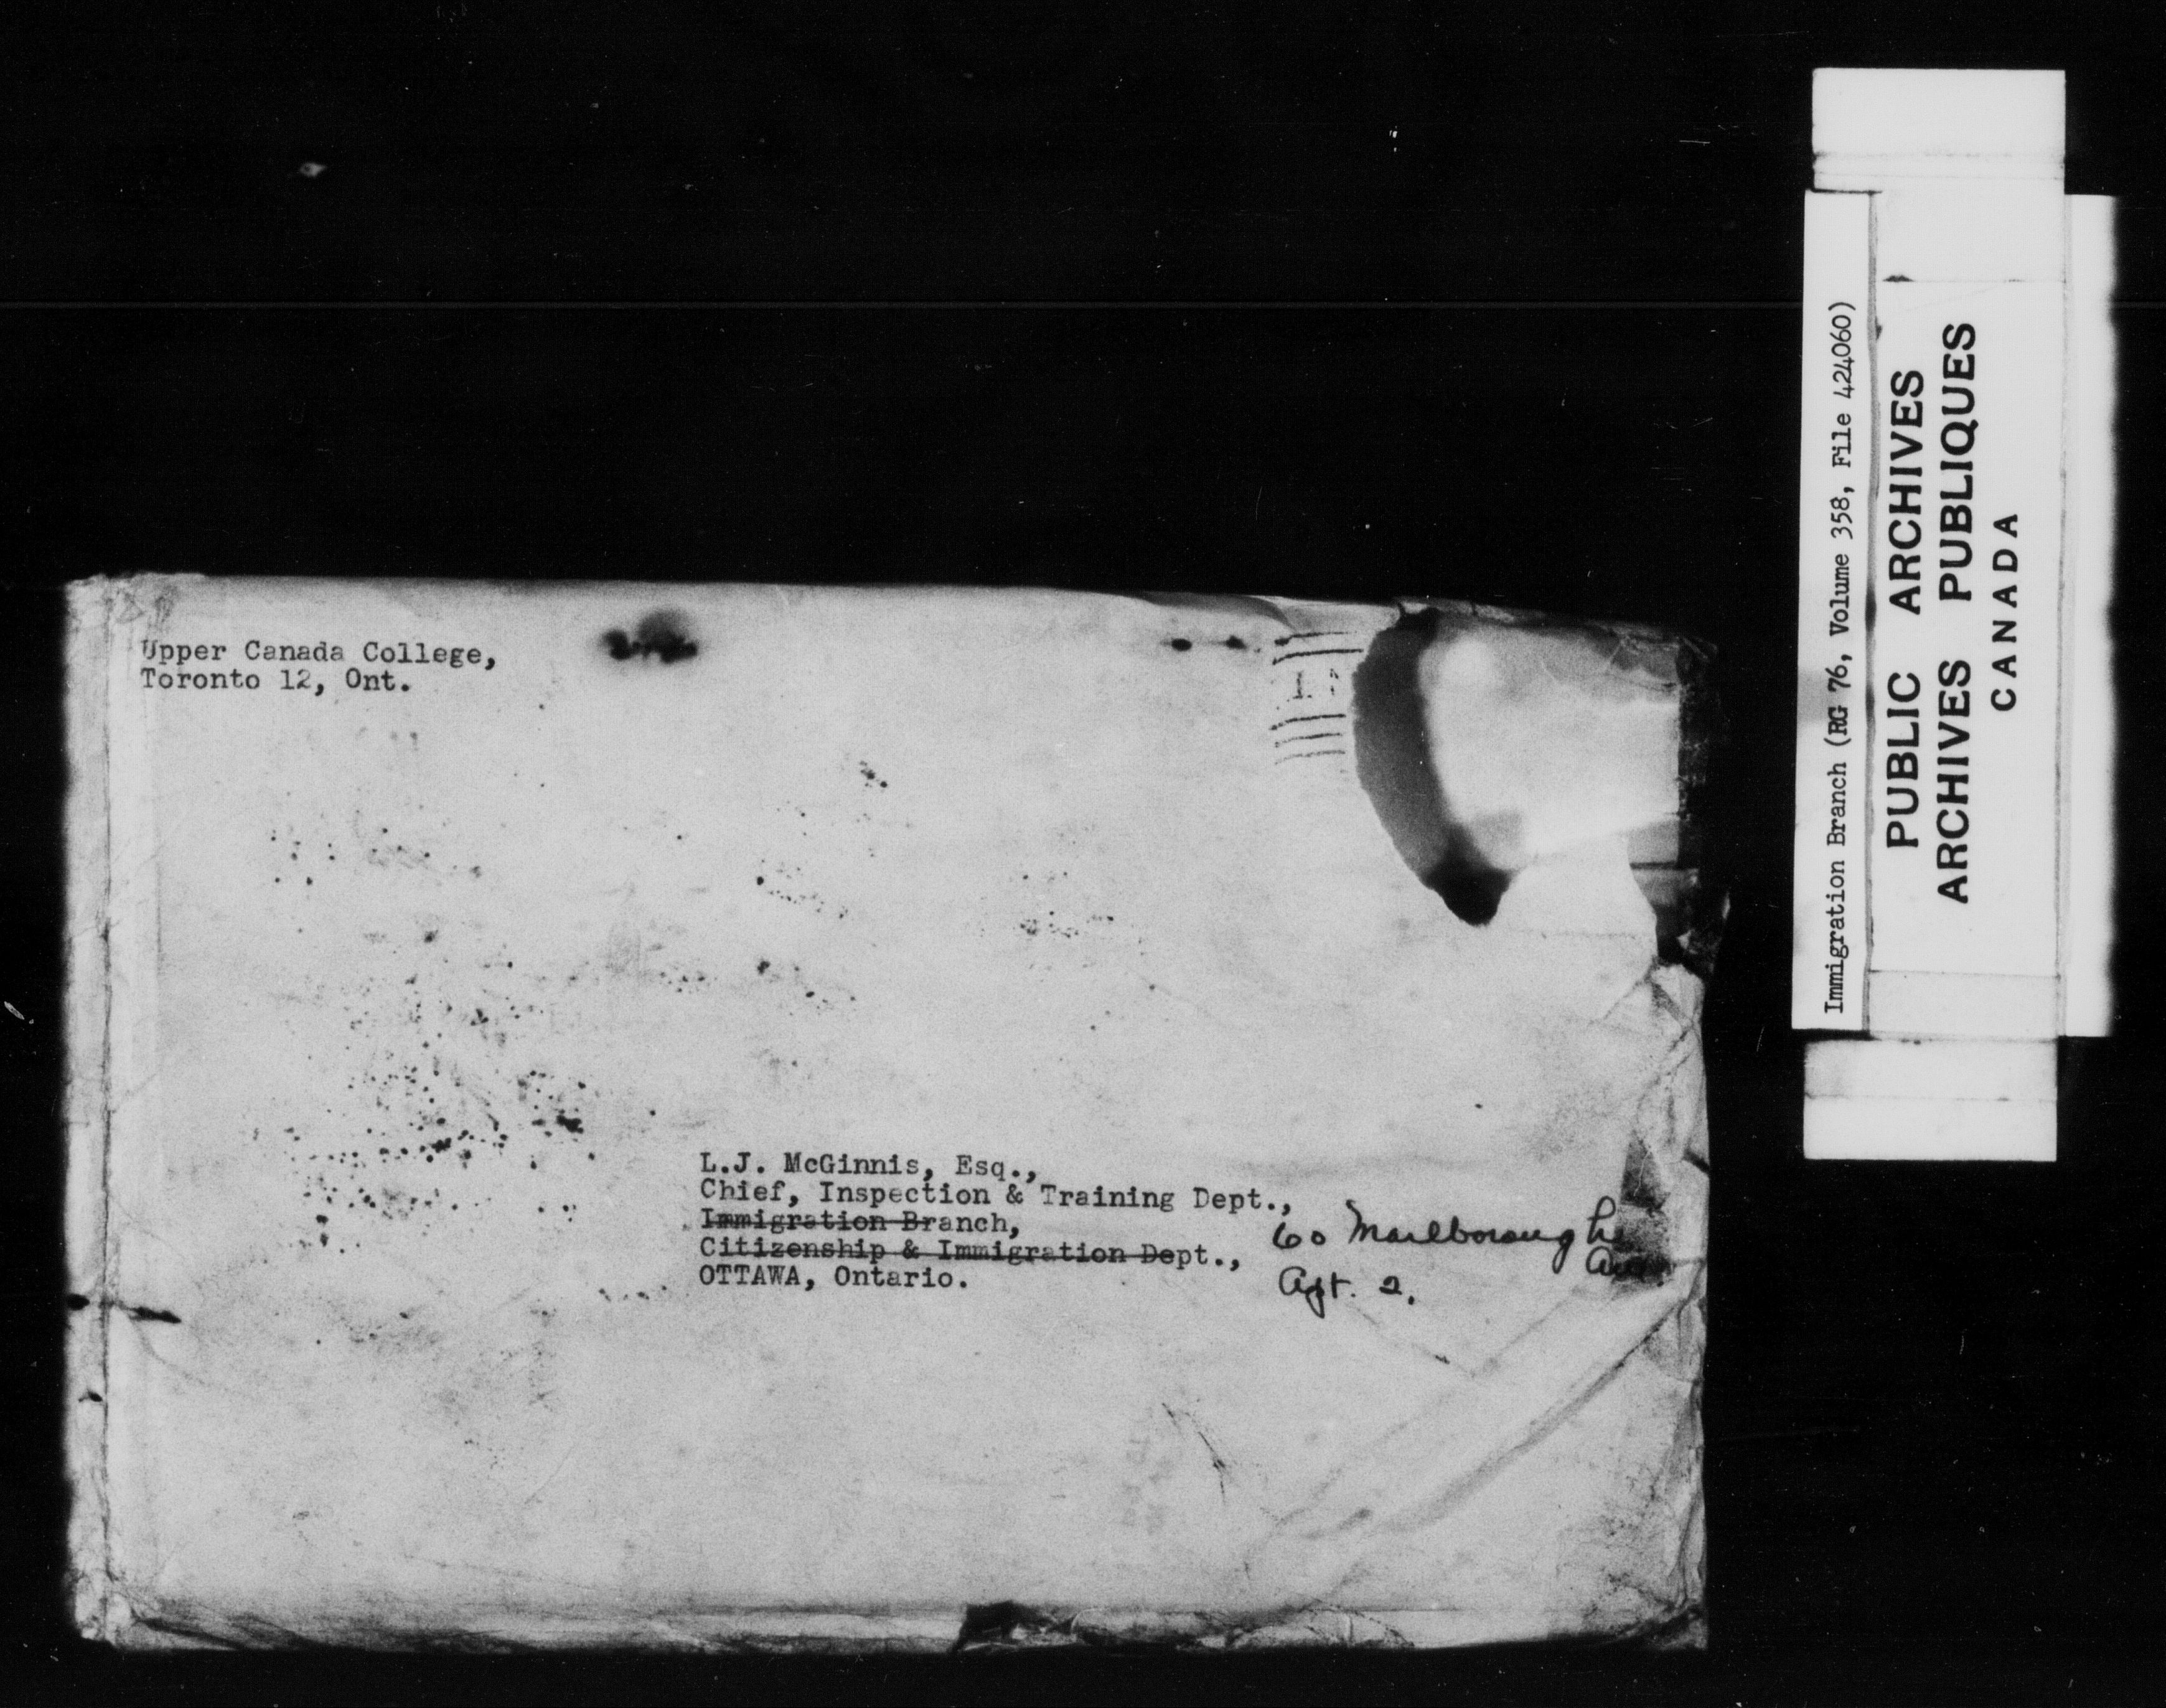 Upper Canada College,
Toronto 12, Ont.
L.J. McGinnis, Esq.,
Chief, Inspection & Training Dept.,
Immigration Branch,
Citizenship & Immigration Dept.,
OTTAWA, Ontario.
60 Marlborough
Ave
Apt. 2.
Immigration Branch (RG 76, Volume 358, File 424060)
PUBLIC ARCHIVES
ARCHIVES PUBLIQUES
CANADA